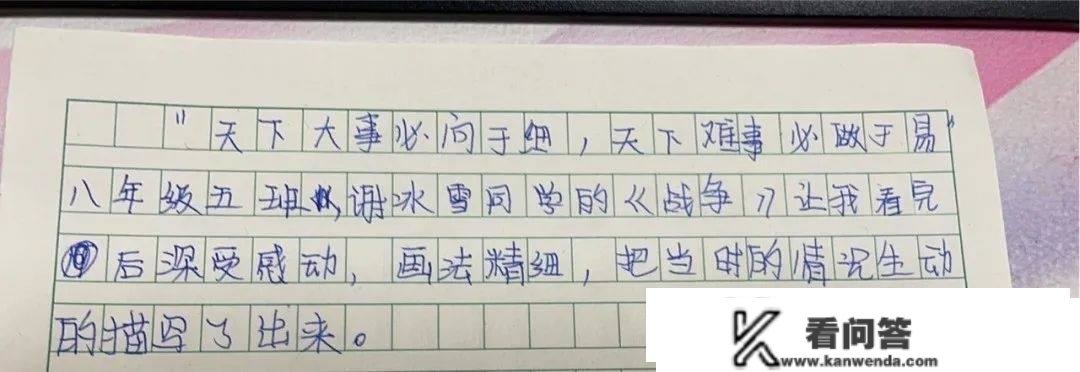 "天下大事必向于细，天下难事必做于易"
八年级五班，谢冰雪同学的《战争》让我看完
后深受感动，画法精细，把当时的情况生动
的描写了出来。
看问答
www.kanwenda.com